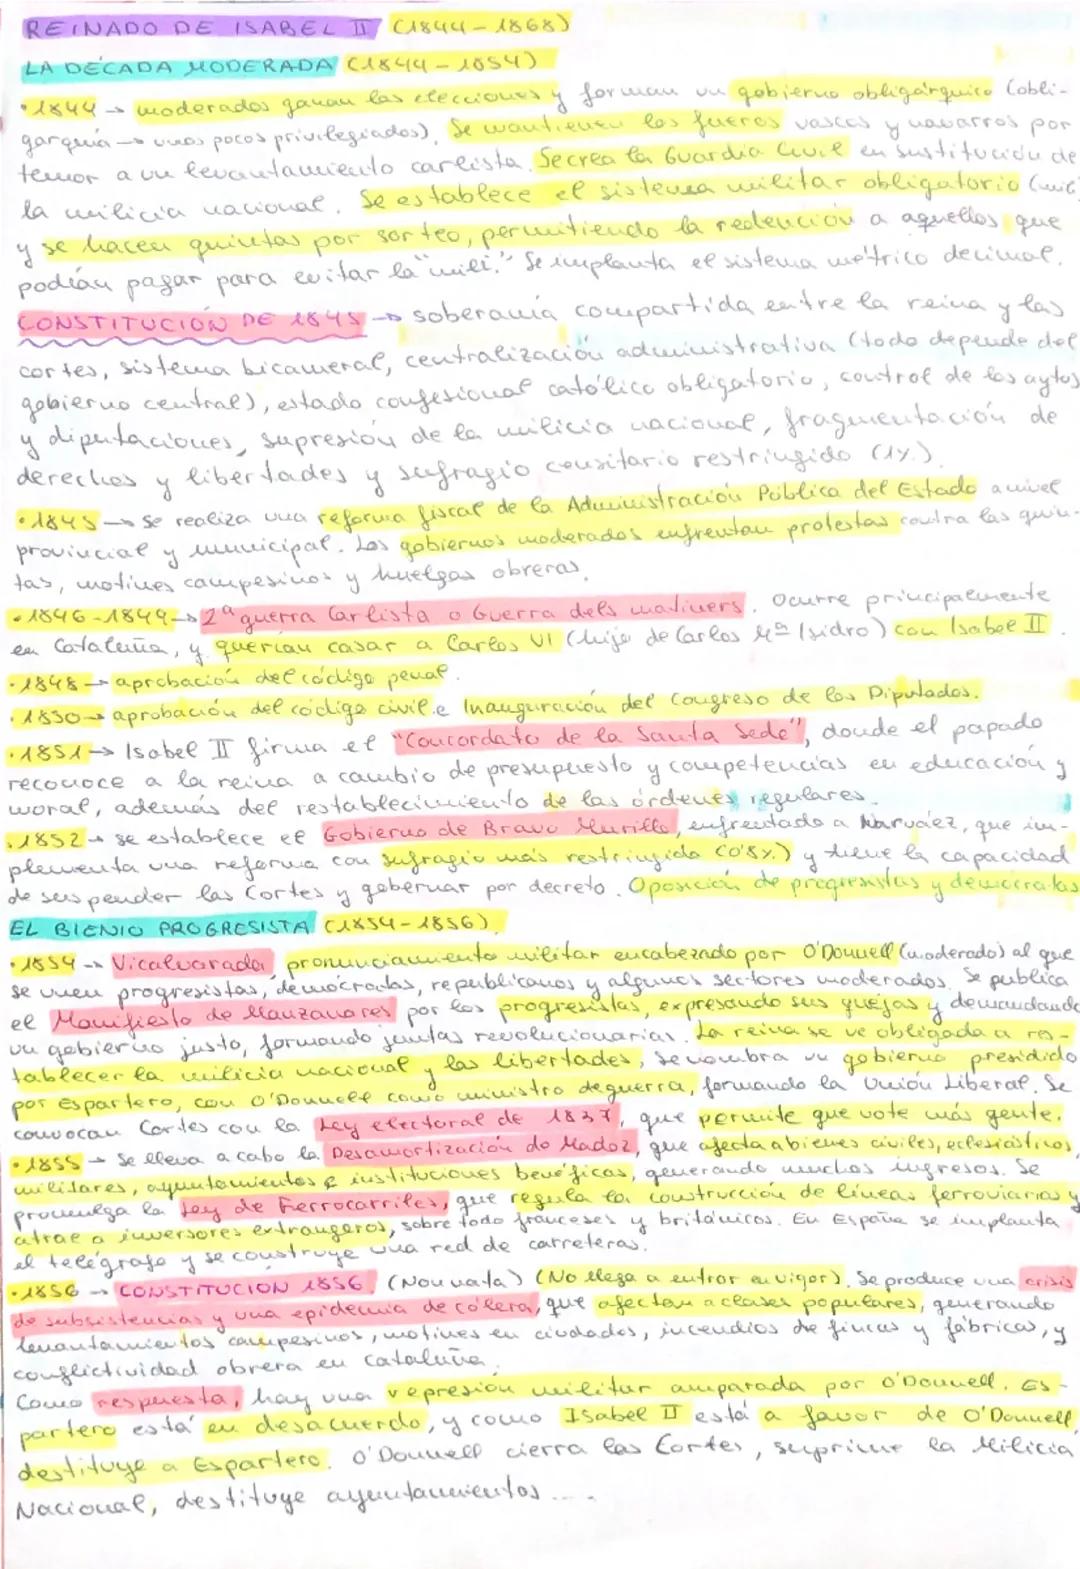 REINADO DE ISABEL II (1844-1868)
LA DÉCADA MODERADA (1844-1854)
•1844 → moderados ganan las elecciones y forman un gobierno obligárquico (obli-
garquía → unos pocos privilegiados). Se mantienen los fueros vascos y navarros por
temor a un levantamiento carlista. Se crea la Guardia Civil en sustitución de
la milicia nacional. Se establece el sistema militar obligatorio (mili
y se hacen quintas por sorteo, permitiendo la redención a aquellos que
podían pagar para evitar la "mili". Se implanta el sistema métrico decimal.
CONSTITUCIÓN DE 1845 → soberanía compartida entre la reina y las
cortes, sistema bicameral, centralización administrativa (todo depende del
gobierno central), estado confesional católico obligatorio, control de los aytos
y diputaciones, supresión de la milicia nacional, fragmentación de
derechos y libertades y sufragio censitario restringido (1%).
•1845 → Se realiza una reforma fiscal de la Administración Pública del Estado a nivel
provincial y municipal. Los gobiernos moderados enfrentan protestas contra las quin-
tas, motines campesinos y huelgas obreras.
•1846-1849 → 2ª guerra Carlista o Guerra dels matiners. Ocurre principalmente
en Cataluña, y querían casar a Carlos VI (hijo de Carlos Mª Isidro) con Isabel II.
•1848 → aprobación del código penal.
•1850 → aprobación del código civil e Inauguración del Congreso de los Diputados.
•1851 → Isabel II firma el "Concordato de la Santa Sede", donde el papado
reconoce a la reina a cambio de presupuesto y competencias en educación y
moral, además del restablecimiento de las órdenes regulares.
•1852 → se establece el Gobierno de Bravo Murillo, enfrentado a Narváez, que im-
plementa una reforma con sufragio más restringido (0'8%) y tiene la capacidad
de suspender las Cortes y gobernar por decreto. Oposición de progresistas y demócratas
EL BIENIO PROGRESISTA (1854-1856).
•1854 → Vicalvarada, pronunciamiento militar encabezado por O'Donnell (moderado) al que
se unen progresistas, demócratas, republicanos y algunos sectores moderados. Se publica
el Manifiesto de Manzanares por los progresistas, expresando sus quejas y demandando
un gobierno justo, formando juntas revolucionarias. La reina se ve obligada a res-
tablecer la milicia nacional y las libertades, se nombra un gobierno presidido
por Espartero, con O'Donnell como ministro de guerra, formando la Unión Liberal. Se
convocan Cortes con la Ley electoral de 1837, que permite que vote más gente.
•1855 → Se lleva a cabo la Desamortización de Madoz, que afecta a bienes civiles, eclesiásticos,
militares, ayuntamientos e instituciones benéficas, generando muchos ingresos. Se
promulga la Ley de Ferrocarriles, que regula la construcción de líneas ferroviarias y
atrae a inversores extrangeros, sobre todo franceses y británicos. En España se implanta
el telégrafo y se construye una red de carreteras.
•1856 → CONSTITUCION 1856. (Non nata) (No llega a entrar en vigor). Se produce una crisis
de subsistencias y una epidemia de cólera, que afectan a clases populares, generando
levantamientos campesinos, motines en ciudades, incendios de fincas y fábricas, y
conflictividad obrera en Cataluña.
Como respuesta, hay una represión militar amparada por O'Donnell. Es-
partero está en desacuerdo, y como Isabel II está a favor de O'Donnell,
destituye a Espartero. O'Donnell cierra las Cortes, suprime la Milicia
Nacional, destituye ayuntamientos....